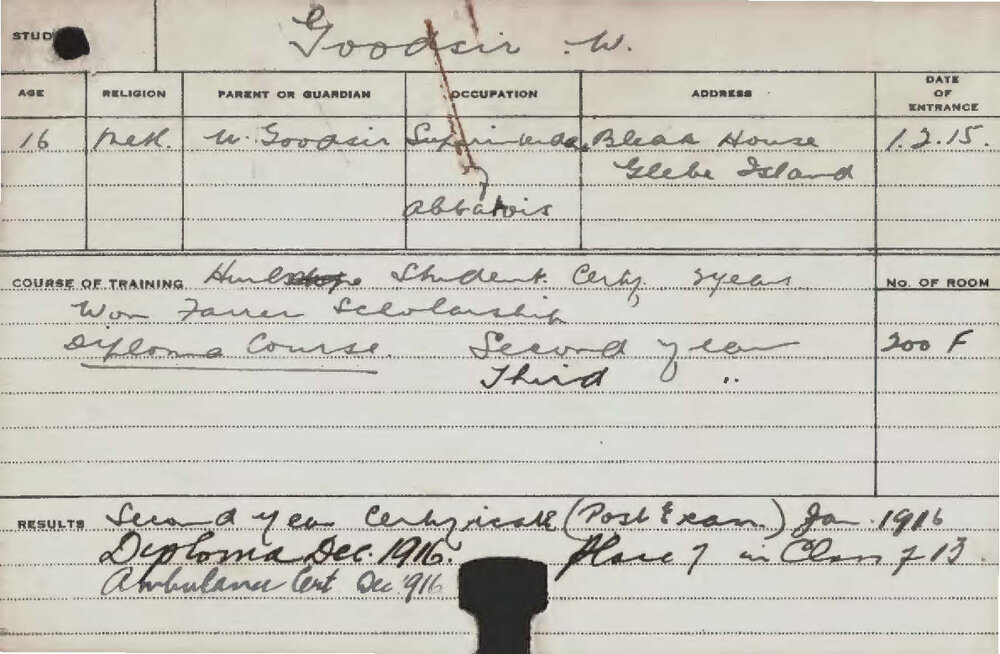 STUD Goodsir W.
AGE RELIGION PARENT OR GUARDIAN OCCUPATION ADDRESS DATE OF ENTRANCE
16 Meth. W. Goodsir Superintendent Bleak House 1.2.15.
Glebe Island
Abbatois
COURSE OF TRAINING Student. Certif. 2 years NO. OF ROOM
Won Farrer Scholarship
Diploma Course. Second year 200 F
Third "
RESULTS Second year Certificate (Post Exam.) Jan 1916
Diploma Dec. 1916. Place 7 in Class of 13.
Ambulance Cert Dec 1916